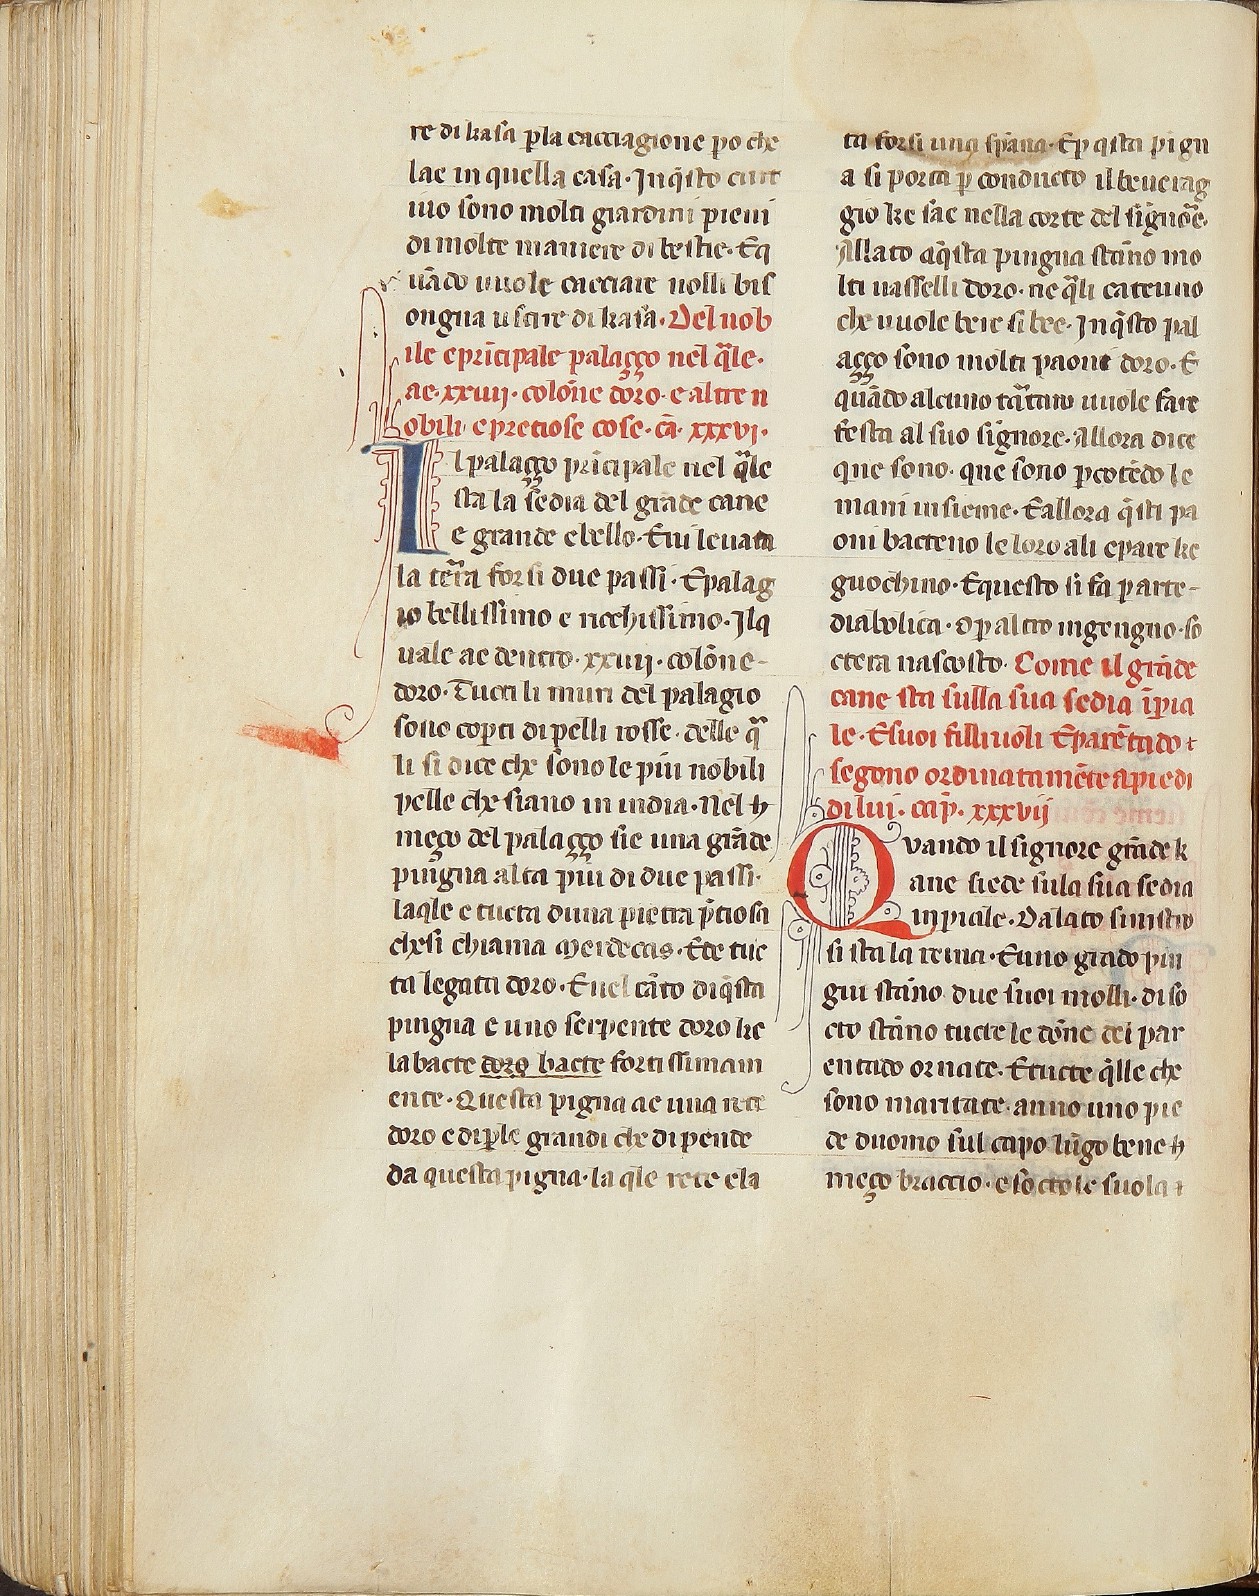 re di kasa p̱la cacciagione po che
lae in quella casa· Inq̄sto curt
iuo sono molti giardini pieni
di molte maniere di bestie· Eq
uādo uuole cacciare nolli bis
ongna uscire di kasa· Del nob
ile epricipale palaçço nel q̄le·
ae·xxiiij· colōne doro· e altre n
obili epretiose cose· ca̅· xxxvi·
Il palaçço pricipale nel q̄le
sta la sedia del grāde cane
e grande ebello· Eui leuata
la terra forsi due passi· Epalag
io bellissimo e ricchissimo· Ilq
uale ae dentro· xxiiij· colōne-
doro· Tucti li muri del palagio
sono cop̱ti di pelli rosse· delle q̄
li si dice che sono le piu nobili
pelle che siano in india· Nel
meço del palaçço sie una grāde
pingna alta piu di due passi·
laqle e tucta duna pietra p̄tiosa
chesi chiama merdecas· Ede tuc
ta legata doro· Enel cāto diq̄sta
pingna e uno serpente doro ke
la bacte doro bacte fortissimam
ente· Questa pigna ae una rete
doro edip̱le grandi che dipende
da questa pigna· la qle rete ela
ta forsi una spāna· Ep̱ qsta pign
a si porta p̱ conducto il beuerag
gio ke sae nella corte del signōre·
Allato aq̄sta pingna stāno mo
lti uasselli doro· ne q̄li cateuno
che uuole bere si bee· Inq̄sto pal
açço sono molti paoni doro· E
quādo alcuno tartaro uuole fare
festa al suo signore· Allora dice
que sono· que sono p̱cotēdo le
mani insieme· Eallora q̄sti pa
oni bacteno le loro ali epare ke
guochino· Equesto si fa p arte-
diabolica· Op̱ altro ingengno· so
cterra nascosto· Come il grāde
cane sta sulla sua sedia īp̱ia
le· Esuoi filliuoli Eparētado
segono ordinatamēte apiedi
di lui· cap̄· xxxvij
Quando il signore grāde k
ane siede sula sua sedia
inp̱iale· Dalato sinistro
si sta la reina· Euno grado piu
giu stāno due suoi molli· di so
cto stāno tucte le dōne del par
entado ornate· Etucte q̄lle che
sono maritate· anno uno pie
de duomo sul capo lūgo bene
meço braccio· e sōcto le suola